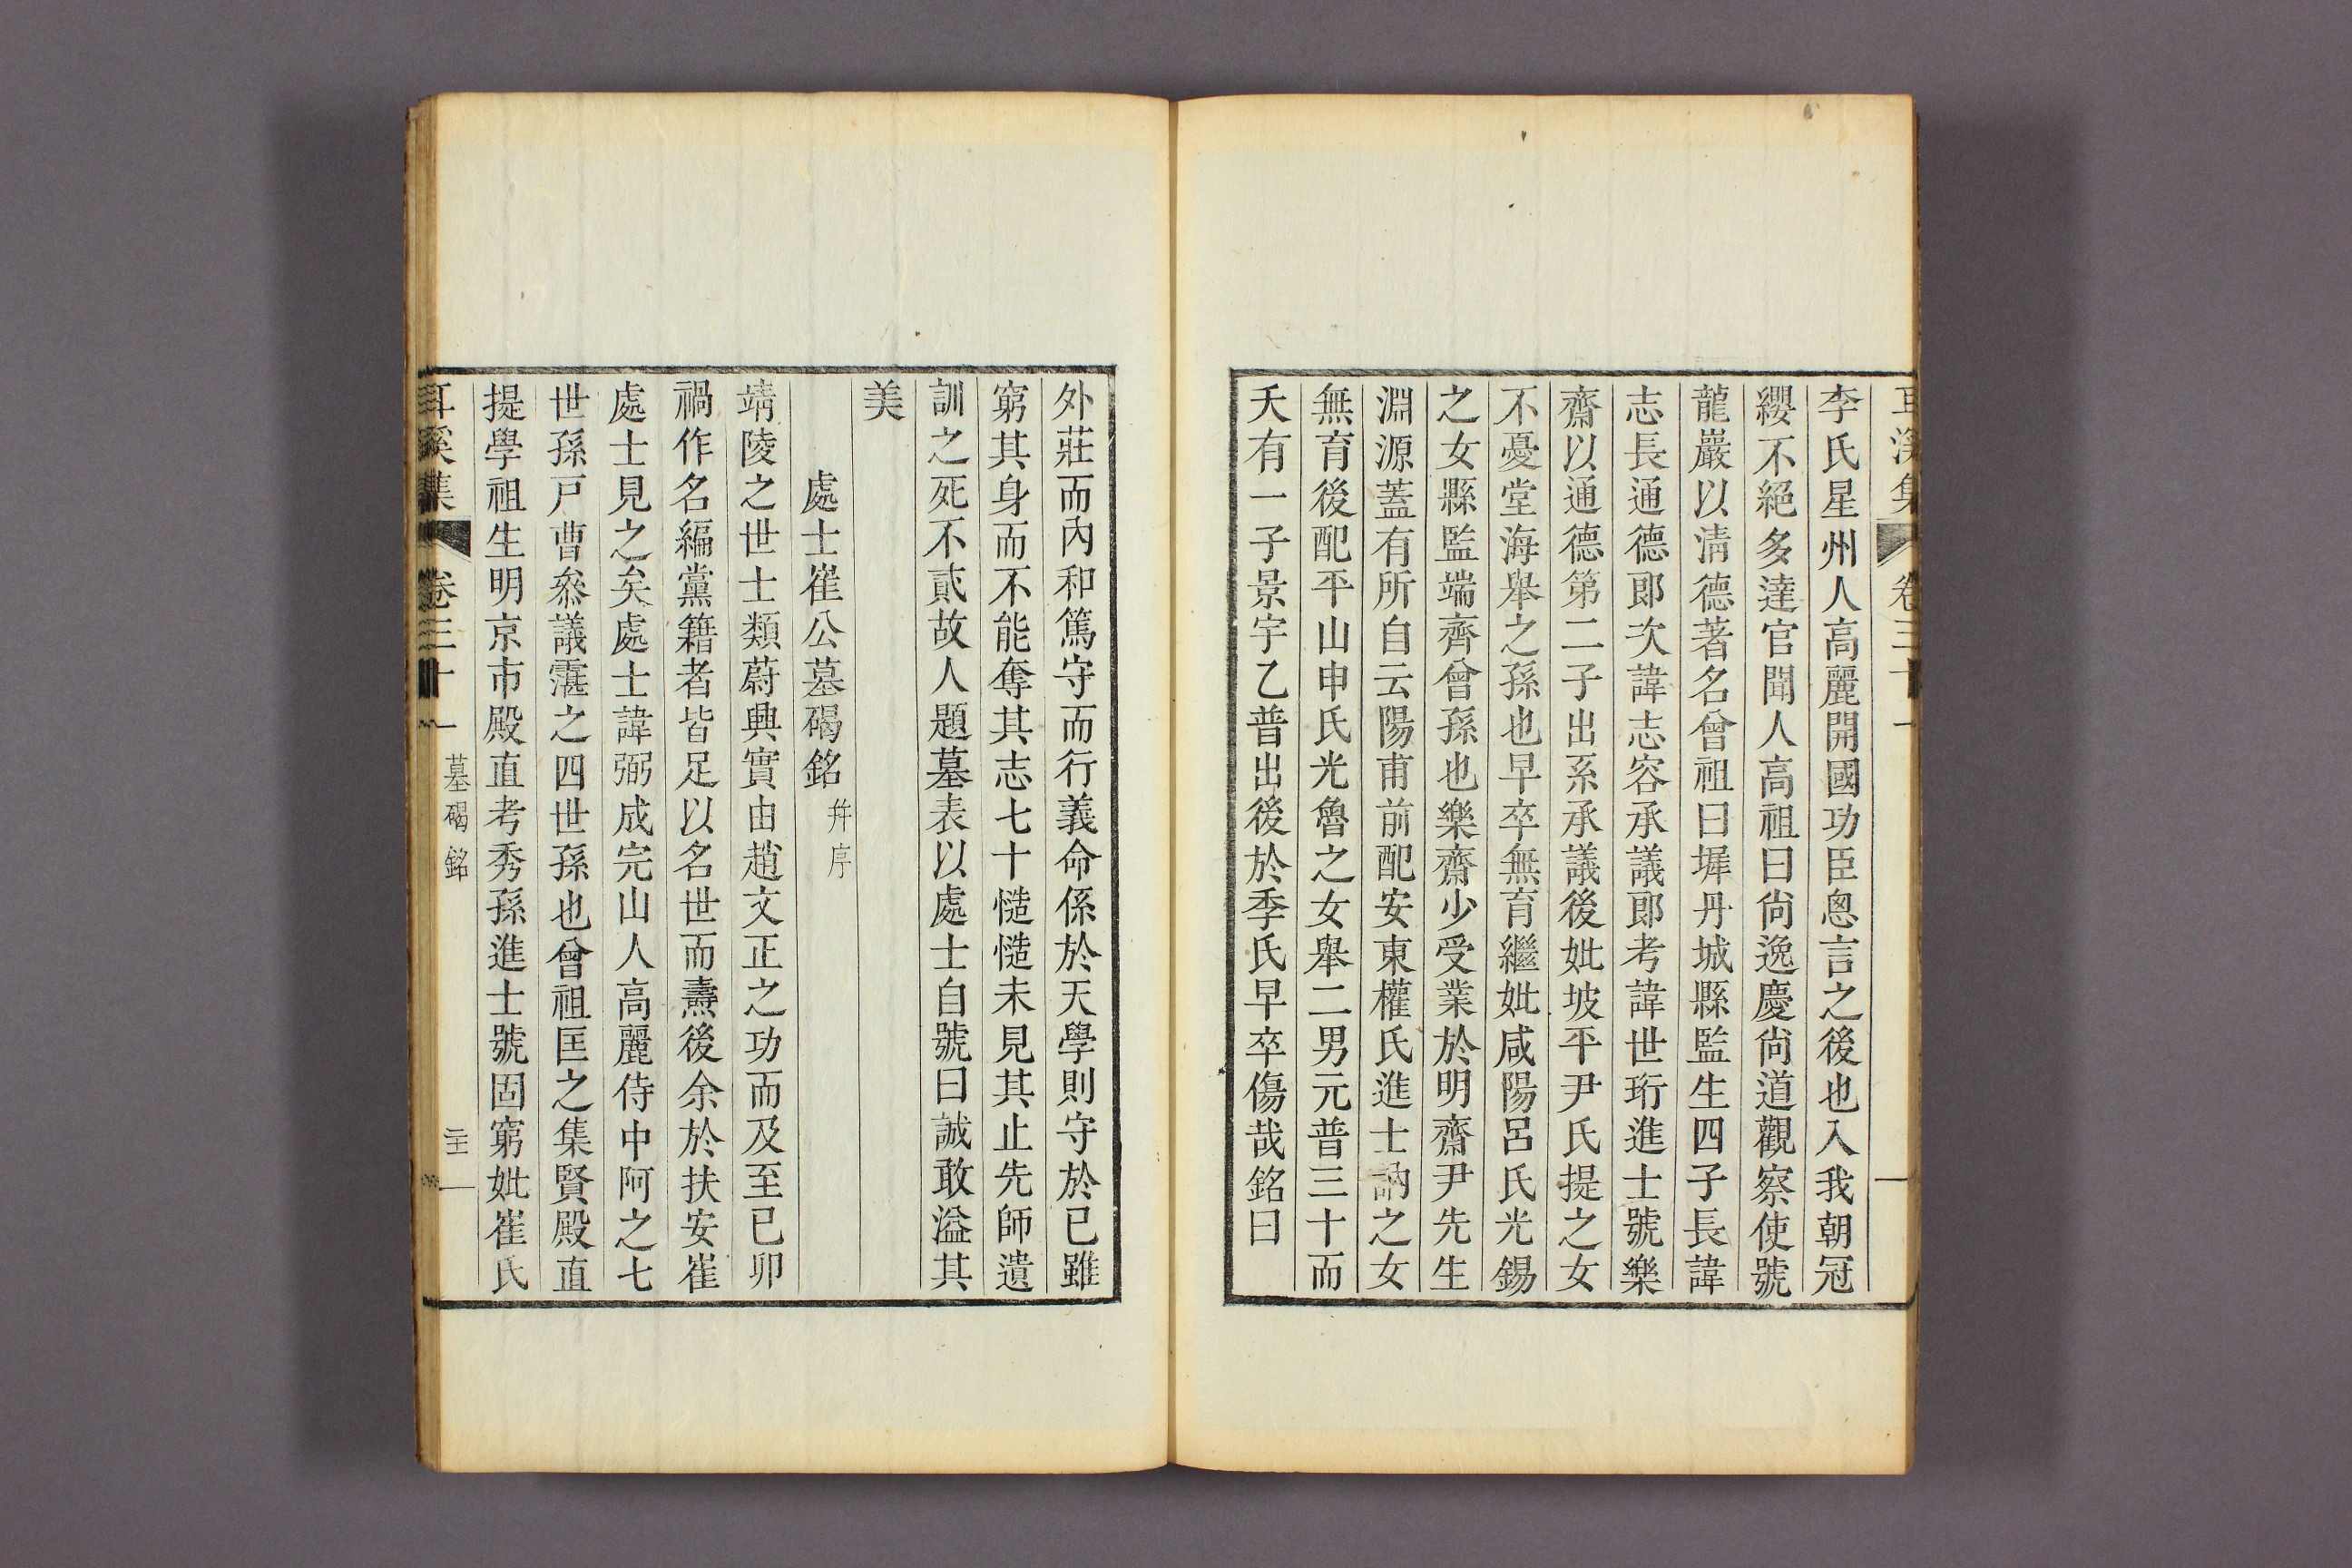 耳溪集 卷三十
李氏星州人高麗開國功臣悤言之後也入我朝冠
纓不絕多達官聞人高祖曰尙逸慶尙道觀察使號
龍巖以淸德著名曾祖曰墀丹城縣監生四子長諱
志長通德郞次諱志容承議郞考諱世珩進士號樂
齋以通德第二子出系承議後妣坡平尹氏提之女
不憂堂海舉之孫也早卒無育繼妣咸陽呂氏光錫
之女縣監端齊曾孫也樂齋少受業於明齋尹先生
淵源蓋有所自云陽甫前配安東權氏進士訥之女
無育後配平山申氏光魯之女舉二男元普三十而
夭有一子景宇乙普出後於季氏早卒傷哉銘曰
外莊而內和篤守而行義命係於天學則守於已雖
窮其身而不能奪其志七十慥慥未見其止先師遺
訓之死不貳故人題墓表以處士自號曰誠敢溢其
美
處士崔公墓碣銘 幷序
靖陵之世士類蔚興實由趙文正之功而及至已卯
禍作名編黨籍者皆足以名世而燾後余於扶安崔
處士見之矣處士諱弼成完山人高麗侍中阿之七
世孫戶曹叅議霮之四世孫也曾祖匡之集賢殿直
提學祖生明京市殿直考秀孫進士號固窮妣崔氏
耳溪集 卷三十 墓碣銘 二十一